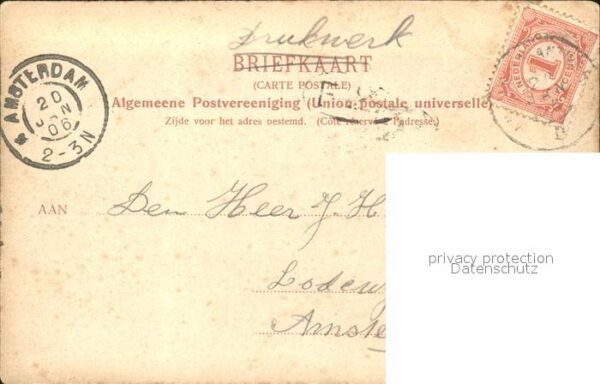 Drukwerk
BRIEFKAART
(CARTE POSTALE)
Algemeene Postvereeniging (Union postale universelle)
Zijde voor het adres bestemd. (Côté réservé à l'adresse.)
AMSTERDAM
20
JAN
06
2-3N
NEDERLAND
1
CENT
AAN Den Heer J. H
Lodewy
Amste
privacy protection
Datenschutz